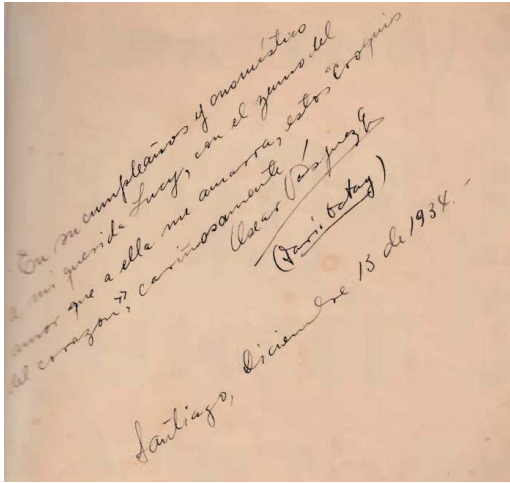 En su cumpleaños y onomástico
a mi querida Lucy, con el zumo del
amor que a ella me amarra, estos "croquis
del corazón", cariñosamente!
Oscar Vásquez
Santiago, diciembre 13 de 1934.-